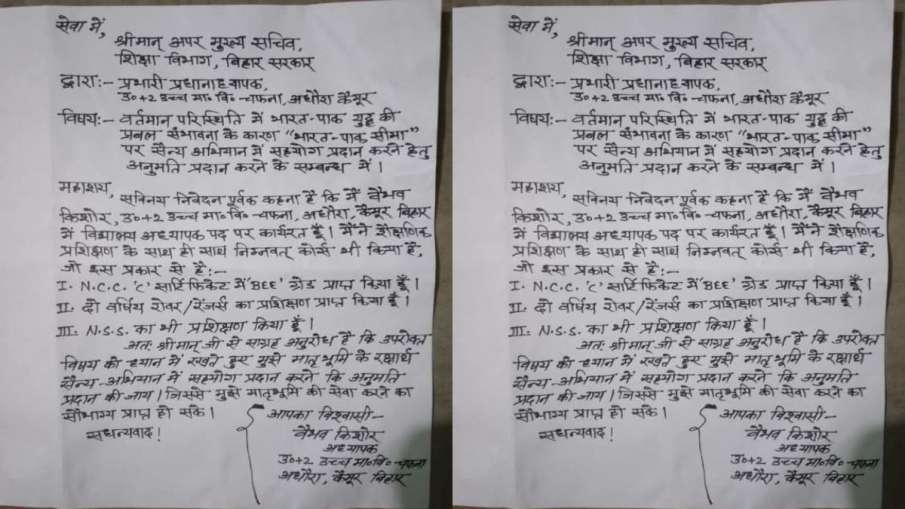 सेवा में,
श्रीमान् अपर मुख्य सचिव,
शिक्षा विभाग, बिहार सरकार
द्वारा:- प्रभारी प्रधानाध्यापक,
उ०+2 उच्च मा० वि० चफना, अधौरा कैमूर
विषय:- वर्तमान परिस्थिति में भारत-पाक युद्ध की
प्रबल संभावना के कारण "भारत-पाक सीमा"
पर सैन्य अभियान में सहयोग प्रदान करने हेतु
अनुमति प्रदान करने के सम्बन्ध में।
महाशय,
सविनय निवेदन पूर्वक कहना है कि मैं वैभव
किशोर, उ०+2 उच्च मा० वि० चफना, अधौरा, कैमूर बिहार
में विद्यालय अध्यापक पद पर कार्यरत हूँ। मैंने शैक्षणिक
प्रशिक्षण के साथ ही साथ निम्नवत् कोर्स भी किया है,
जो इस प्रकार से है:-
I. N.C.C. 'C' सार्टिफिकेट में 'BEE' ग्रेड प्राप्त किया हूँ।
II. दो वर्षिय रोवर/रेंजर्स का प्रशिक्षण प्राप्त किया हूँ।
III. N.S.S. का भी प्रशिक्षण किया हूँ।
अतः श्रीमान् जी से साग्रह अनुरोध है कि उपरोक्त
विषय को ध्यान में रखते हुए मुझे मातृभूमि के रक्षार्थ
सैन्य-अभियान में सहयोग प्रदान करने कि अनुमति
प्रदान की जाय। जिससे मुझे मातृभूमि की सेवा करने का
सौभाग्य प्राप्त हो सके।
सधन्यवाद!
आपका विश्वासी-
वैभव किशोर
अध्यापक
उ०+2 उच्च मा० वि० चफना
अधौरा, कैमूर बिहार
सेवा में,
श्रीमान् अपर मुख्य सचिव,
शिक्षा विभाग, बिहार सरकार
द्वारा:- प्रभारी प्रधानाध्यापक,
उ०+2 उच्च मा० वि० चफना, अधौरा कैमूर
विषय:- वर्तमान परिस्थिति में भारत-पाक युद्ध की
प्रबल संभावना के कारण "भारत-पाक सीमा"
पर सैन्य अभियान में सहयोग प्रदान करने हेतु
अनुमति प्रदान करने के सम्बन्ध में।
महाशय,
सविनय निवेदन पूर्वक कहना है कि मैं वैभव
किशोर, उ०+2 उच्च मा० वि० चफना, अधौरा, कैमूर बिहार
में विद्यालय अध्यापक पद पर कार्यरत हूँ। मैंने शैक्षणिक
प्रशिक्षण के साथ ही साथ निम्नवत् कोर्स भी किया है,
जो इस प्रकार से है:-
I. N.C.C. 'C' सार्टिफिकेट में 'BEE' ग्रेड प्राप्त किया हूँ।
II. दो वर्षिय रोवर/रेंजर्स का प्रशिक्षण प्राप्त किया हूँ।
III. N.S.S. का भी प्रशिक्षण किया हूँ।
अतः श्रीमान् जी से साग्रह अनुरोध है कि उपरोक्त
विषय को ध्यान में रखते हुए मुझे मातृभूमि के रक्षार्थ
सैन्य-अभियान में सहयोग प्रदान करने कि अनुमति
प्रदान की जाय। जिससे मुझे मातृभूमि की सेवा करने का
सौभाग्य प्राप्त हो सके।
सधन्यवाद!
आपका विश्वासी-
वैभव किशोर
अध्यापक
उ०+2 उच्च मा० वि० चफना
अधौरा, कैमूर बिहार